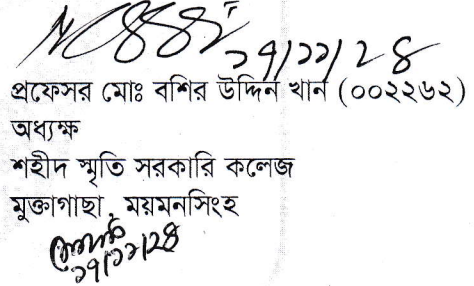 ২৭/১১/২৪
প্রফেসর মোঃ বশির উদ্দিন খান (০০২২৬২)
অধ্যক্ষ
শহীদ স্মৃতি সরকারি কলেজ
মুক্তাগাছা, ময়মনসিংহ
২৭/১১/২৪